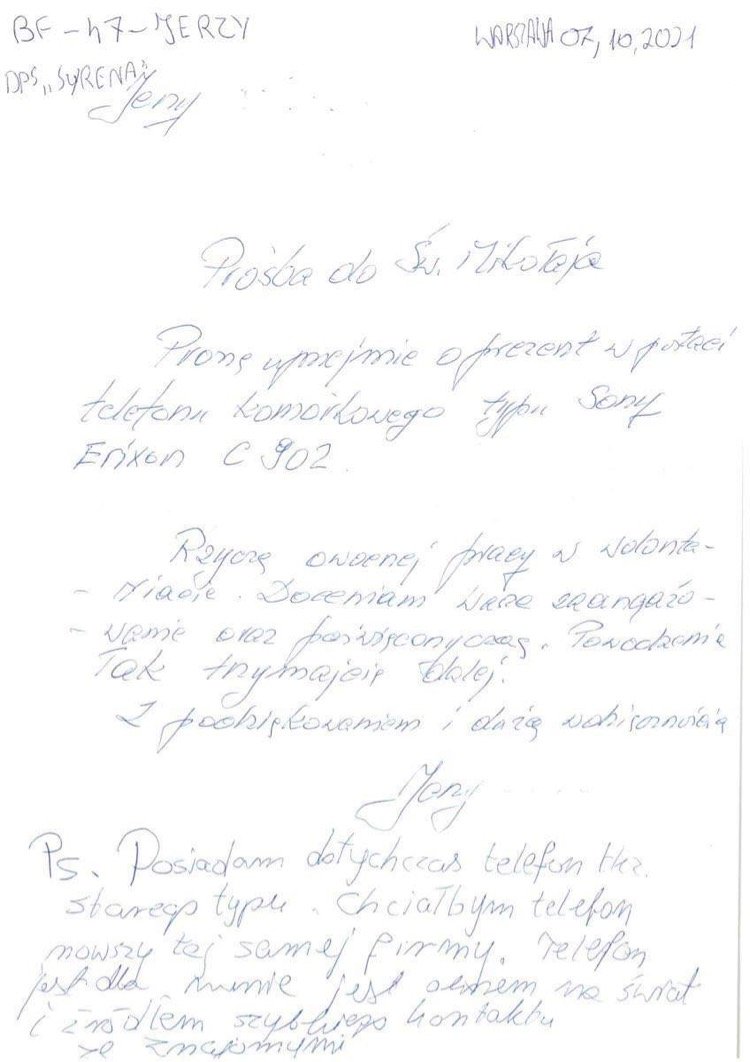 BF-47-JERZY
WARSZAWA 07,10,2021
DPS „SYRENA”
Jerzy
Prośba do Św. Mikołaja
Proszę uprzejmie o prezent w postaci
telefonu komórkowego typu Sony
Erixon C 902.
Rzyczę owocnej pracy w wolonta-
- riacie. Doceniam wasze zaangażo-
- wanie oraz poświęcony czas. Powodzenia
Tak trzymajcie dalej.
Z podziękowaniem i dużą wdzięcznością
Jerzy
Ps. Posiadam dotychczas telefon tkz.
starego typu. Chciałbym telefon
nowszy tej samej firmy. Telefon
jest dla mnie jest oknem na świat
i źródłem szybkiego kontaktu
ze znajomymi